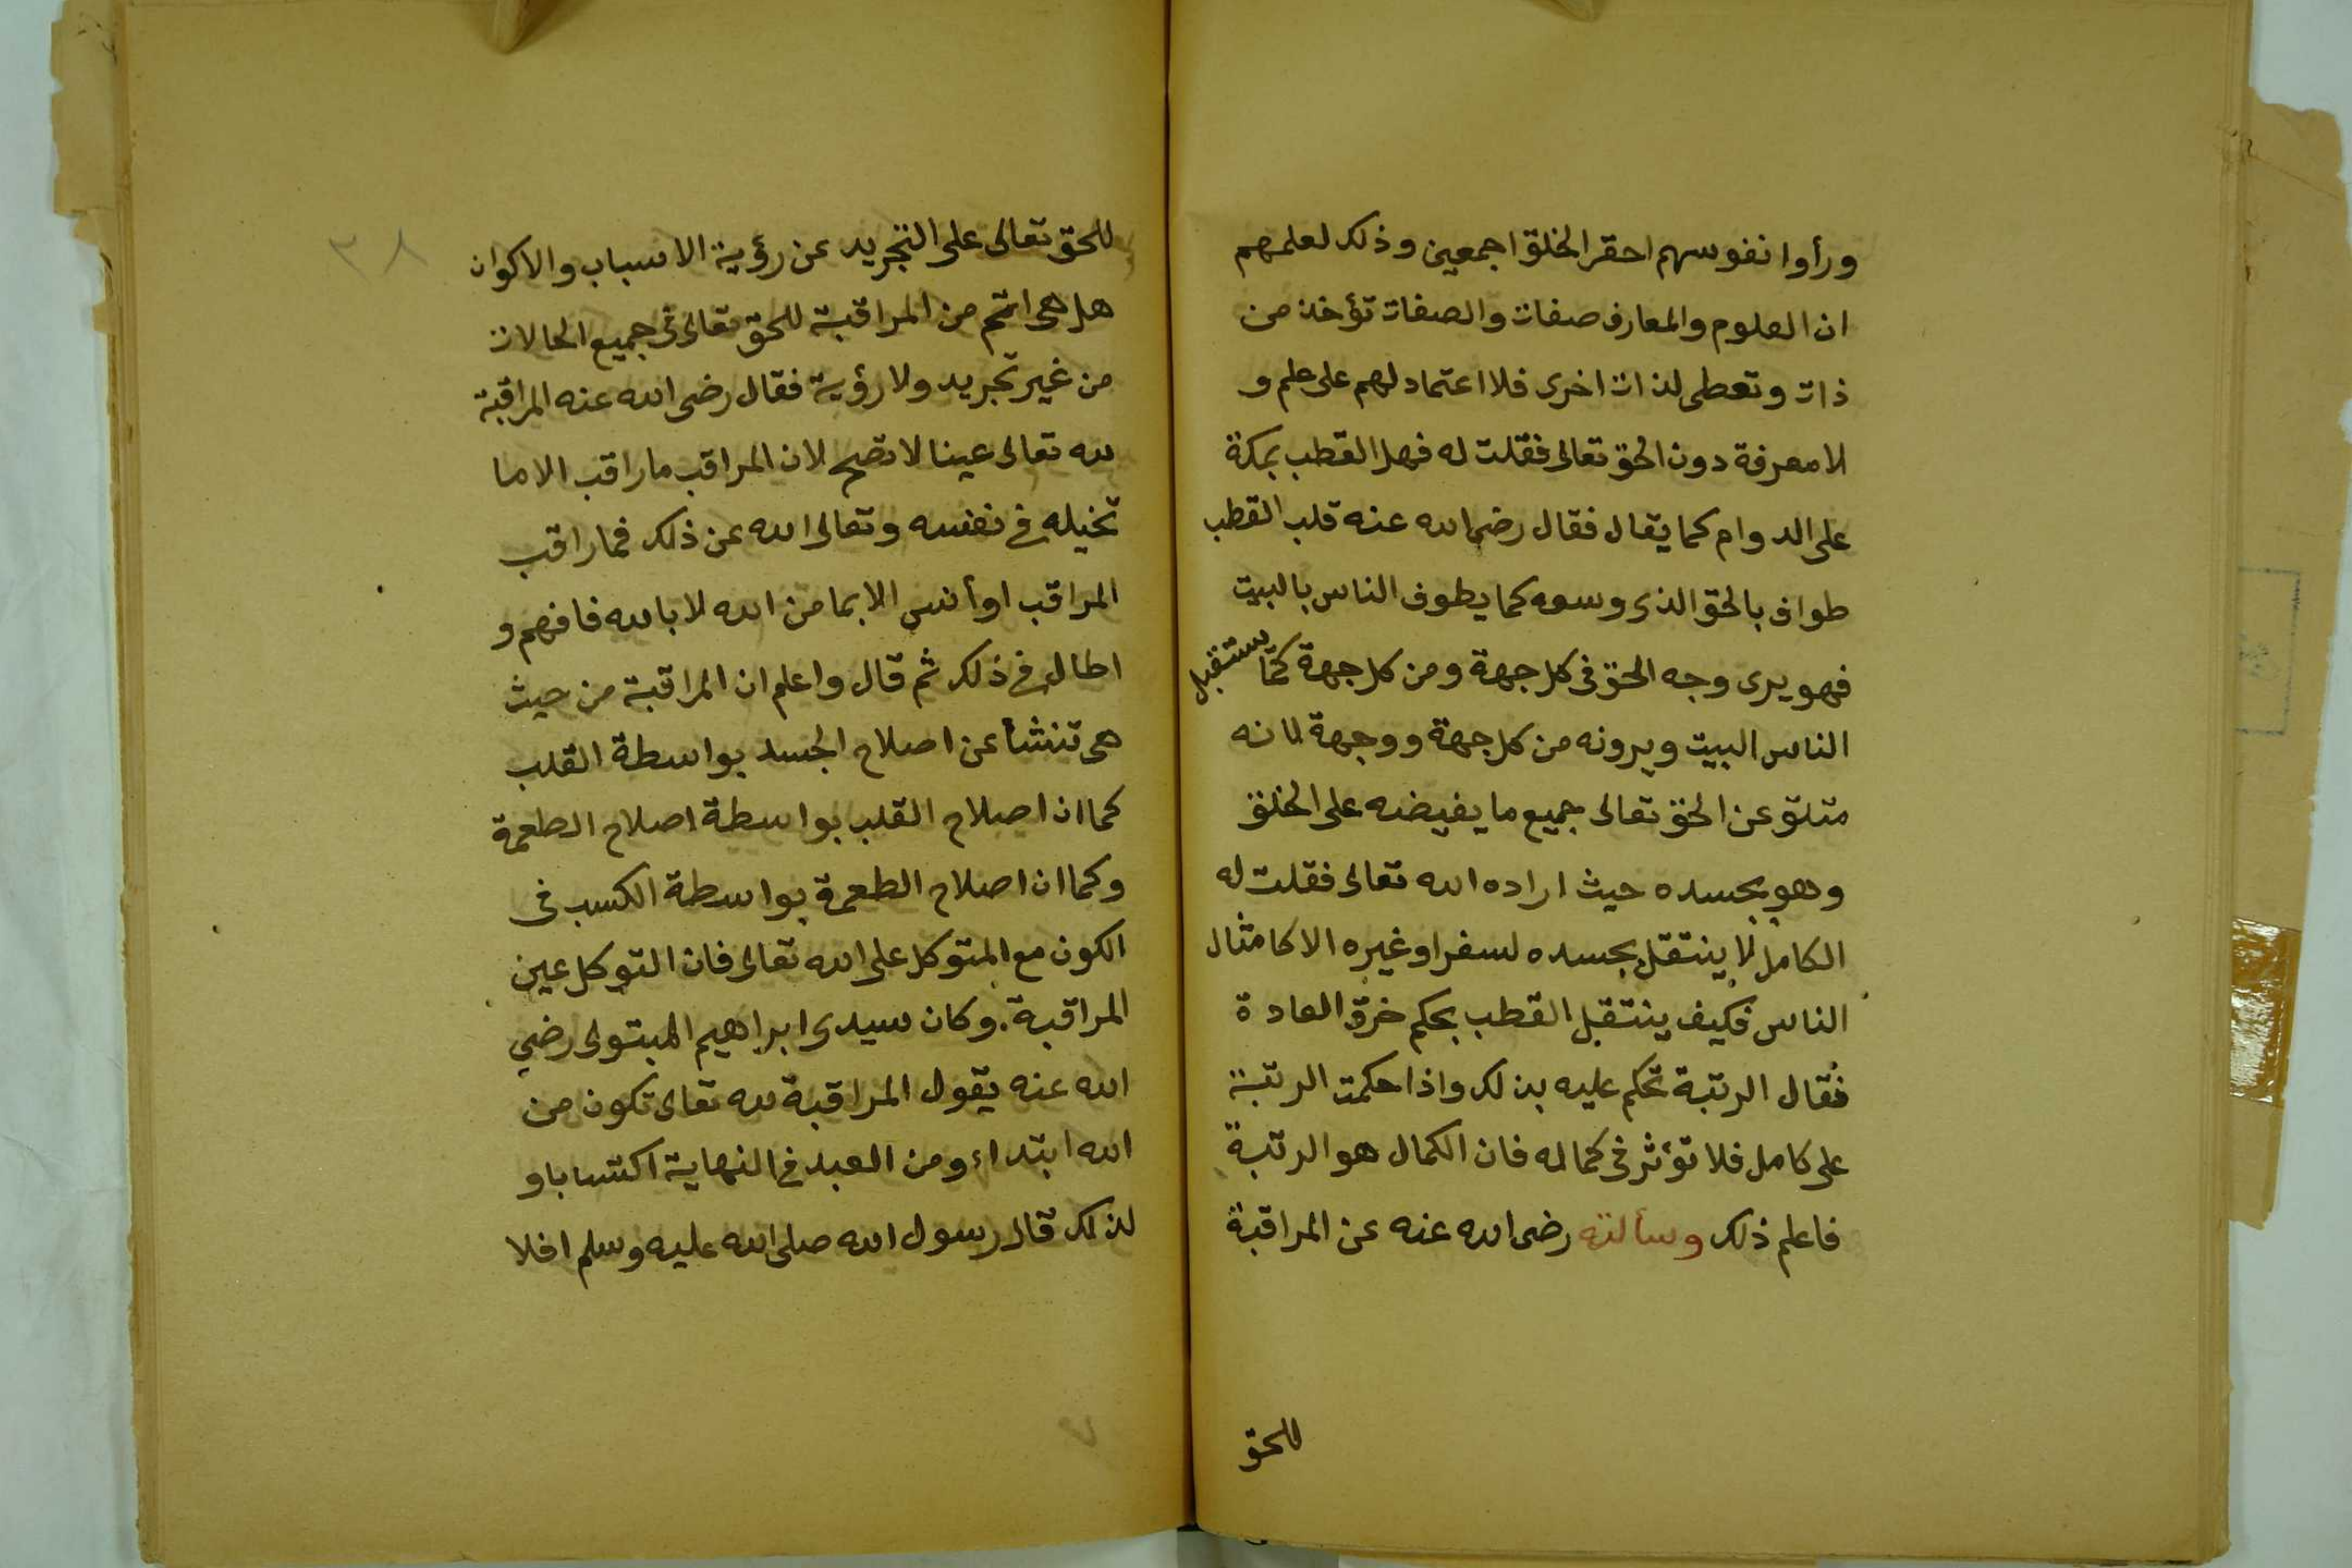 ورأوا نفوسهم احقر الخلق اجمعين وذلك لعلمهم
ان العلوم والمعارف صفات والصفات تؤخذ من
ذات وتعطى لذات اخرى فلا اعتماد لهم على علم و
لا معرفة دون الحق تعالى فقلت له فهل القطب بمكة
على الدوام كما يقال فقال رضى الله عنه قلب القطب
طواف بالحق الذى وسعه كما يطوف الناس بالبيت
فهو يرى وجه الحق فى كل جهة ومن كل جهة كما يستقبل
الناس البيت ويرونه من كل جهة ووجهة لانه
متلق عن الحق تعالى جميع ما يفيضه على الخلق
وهو بجسده حيث اراده الله تعالى فقلت له
الكامل لا ينتقل بجسده لسفر او غيره الا كامثال
الناس فكيف ينتقل القطب بحكم خرق العادة
فقال الرتبة تحكم عليه بذلك واذا حكمت الرتبة
على كامل فلا تؤثر فى كماله فان الكمال هو الرتبة
فاعلم ذلك وسألته رضى الله عنه عن المراقبة
للحق
٣٨
للحق تعالى على التجريد عن رؤية الاسباب والاكوان
هل هى اتم من المراقبة للحق تعالى فى جميع الحالات
من غير تجريد ولا رؤية فقال رضى الله عنه المراقبة
لله تعالى عينا لا تصح لان المراقب ما راقب الا ما
تخيله فى نفسه وتعالى الله عن ذلك فما راقب
المراقب او أنس الا بما من الله لا بالله فافهم و
اطال فى ذلك ثم قال واعلم ان المراقبة من حيث
هى تنشأ عن اصلاح الجسد بواسطة القلب
كما ان اصلاح القلب بواسطة اصلاح الطعمة
وكما ان اصلاح الطعمة بواسطة الكسب فى
الكون مع المتوكل على الله تعالى فان التوكل عين
المراقبة. وكان سيدى ابراهيم المبتولى رضي
الله عنه يقول المراقبة لله تعالى تكون من
الله ابتداء ومن العبد فى النهاية اكتسابا و
لذلك قال رسول الله صلى الله عليه وسلم افلا